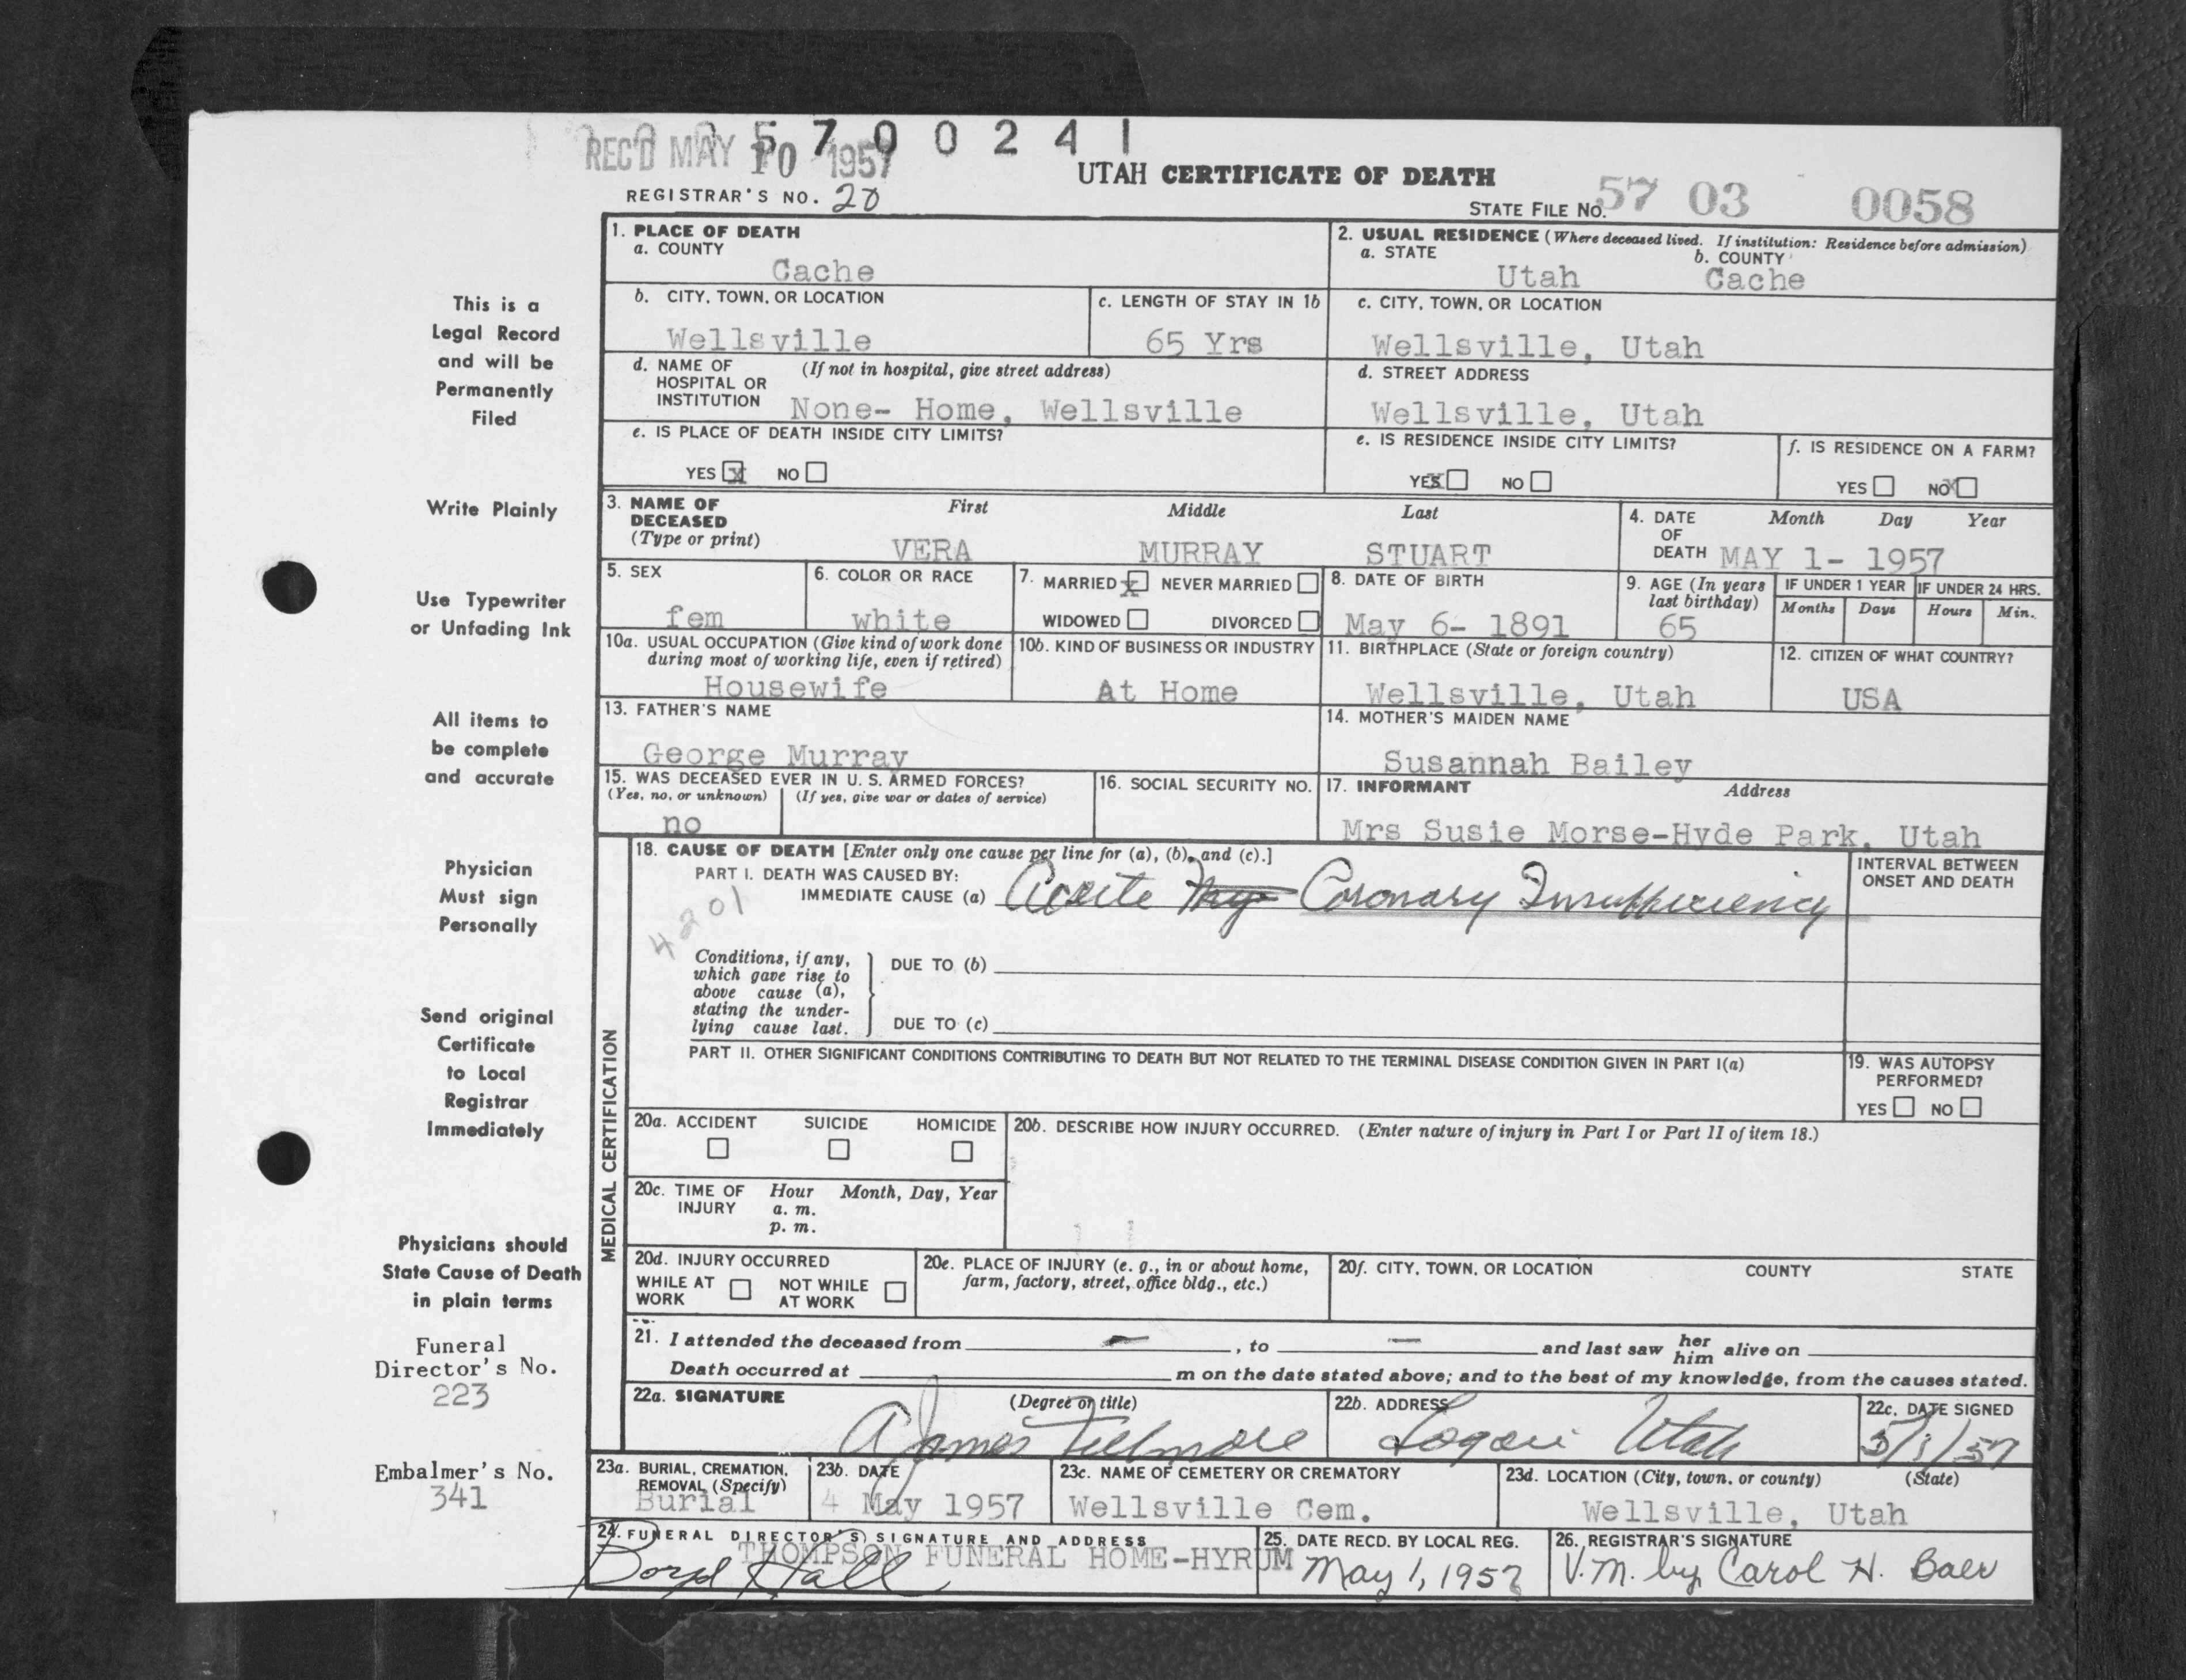 5 7 0 0 2 4 1
REC'D MAY 10 1957
UTAH CERTIFICATE OF DEATH
REGISTRAR'S NO. 20
STATE FILE NO. 57 03 0058
1. PLACE OF DEATH
a. COUNTY
Cache
2. USUAL RESIDENCE (Where deceased lived. If institution: Residence before admission)
a. STATE b. COUNTY
Utah Cache
b. CITY, TOWN, OR LOCATION
Wellsville
c. LENGTH OF STAY IN 1b
65 Yrs
c. CITY, TOWN, OR LOCATION
Wellsville, Utah
d. NAME OF (If not in hospital, give street address)
HOSPITAL OR
INSTITUTION None- Home, Wellsville
d. STREET ADDRESS
Wellsville, Utah
e. IS PLACE OF DEATH INSIDE CITY LIMITS?
YES x NO
e. IS RESIDENCE INSIDE CITY LIMITS?
YES x NO
f. IS RESIDENCE ON A FARM?
YES NO x
3. NAME OF DECEASED (Type or print)
First Middle Last
VERA MURRAY STUART
4. DATE OF DEATH
Month Day Year
MAY 1- 1957
5. SEX
fem
6. COLOR OR RACE
white
7. MARRIED x NEVER MARRIED
WIDOWED DIVORCED
8. DATE OF BIRTH
May 6- 1891
9. AGE (In years last birthday)
65
IF UNDER 1 YEAR
Months Days
IF UNDER 24 HRS.
Hours Min.
10a. USUAL OCCUPATION (Give kind of work done
during most of working life, even if retired)
Housewife
10b. KIND OF BUSINESS OR INDUSTRY
At Home
11. BIRTHPLACE (State or foreign country)
Wellsville, Utah
12. CITIZEN OF WHAT COUNTRY?
USA
13. FATHER'S NAME
George Murray
14. MOTHER'S MAIDEN NAME
Susannah Bailey
15. WAS DECEASED EVER IN U. S. ARMED FORCES?
(Yes, no, or unknown) (If yes, give war or dates of service)
no
16. SOCIAL SECURITY NO.
17. INFORMANT Address
Mrs Susie Morse-Hyde Park, Utah
MEDICAL CERTIFICATION
18. CAUSE OF DEATH [Enter only one cause per line for (a), (b), and (c).]
PART I. DEATH WAS CAUSED BY:
IMMEDIATE CAUSE (a) Acute My Coronary Insufficiency
4201
INTERVAL BETWEEN
ONSET AND DEATH
Conditions, if any,
which gave rise to
above cause (a),
stating the under-
lying cause last.
DUE TO (b)
DUE TO (c)
PART II. OTHER SIGNIFICANT CONDITIONS CONTRIBUTING TO DEATH BUT NOT RELATED TO THE TERMINAL DISEASE CONDITION GIVEN IN PART I(a)
19. WAS AUTOPSY
PERFORMED?
YES NO
20a. ACCIDENT SUICIDE HOMICIDE
20b. DESCRIBE HOW INJURY OCCURRED. (Enter nature of injury in Part I or Part II of item 18.)
20c. TIME OF INJURY
Hour Month, Day, Year
a. m.
p. m.
20d. INJURY OCCURRED
WHILE AT WORK NOT WHILE AT WORK
20e. PLACE OF INJURY (e. g., in or about home,
farm, factory, street, office bldg., etc.)
20f. CITY, TOWN, OR LOCATION COUNTY STATE
21. I attended the deceased from -, to - and last saw her him alive on
Death occurred at m on the date stated above; and to the best of my knowledge, from the causes stated.
22a. SIGNATURE (Degree or title)
A James
22b. ADDRESS
Logan Utah
22c. DATE SIGNED
23a. BURIAL, CREMATION,
REMOVAL (Specify)
Burial
23b. DATE
4 May 1957
23c. NAME OF CEMETERY OR CREMATORY
Wellsville Cem.
23d. LOCATION (City, town, or county) (State)
Wellsville, Utah
24. FUNERAL DIRECTOR'S SIGNATURE AND ADDRESS
THOMPSON FUNERAL HOME-HYRUM
Boyd Hall
25. DATE RECD. BY LOCAL REG.
May 1, 1957
26. REGISTRAR'S SIGNATURE
V.M. by Carol H. Baer
This is a
Legal Record
and will be
Permanently
Filed
Write Plainly
Use Typewriter
or Unfading Ink
All items to
be complete
and accurate
Physician
Must sign
Personally
Send original
Certificate
to Local
Registrar
Immediately
Physicians should
State Cause of Death
in plain terms
Funeral
Director's No.
223
Embalmer's No.
341